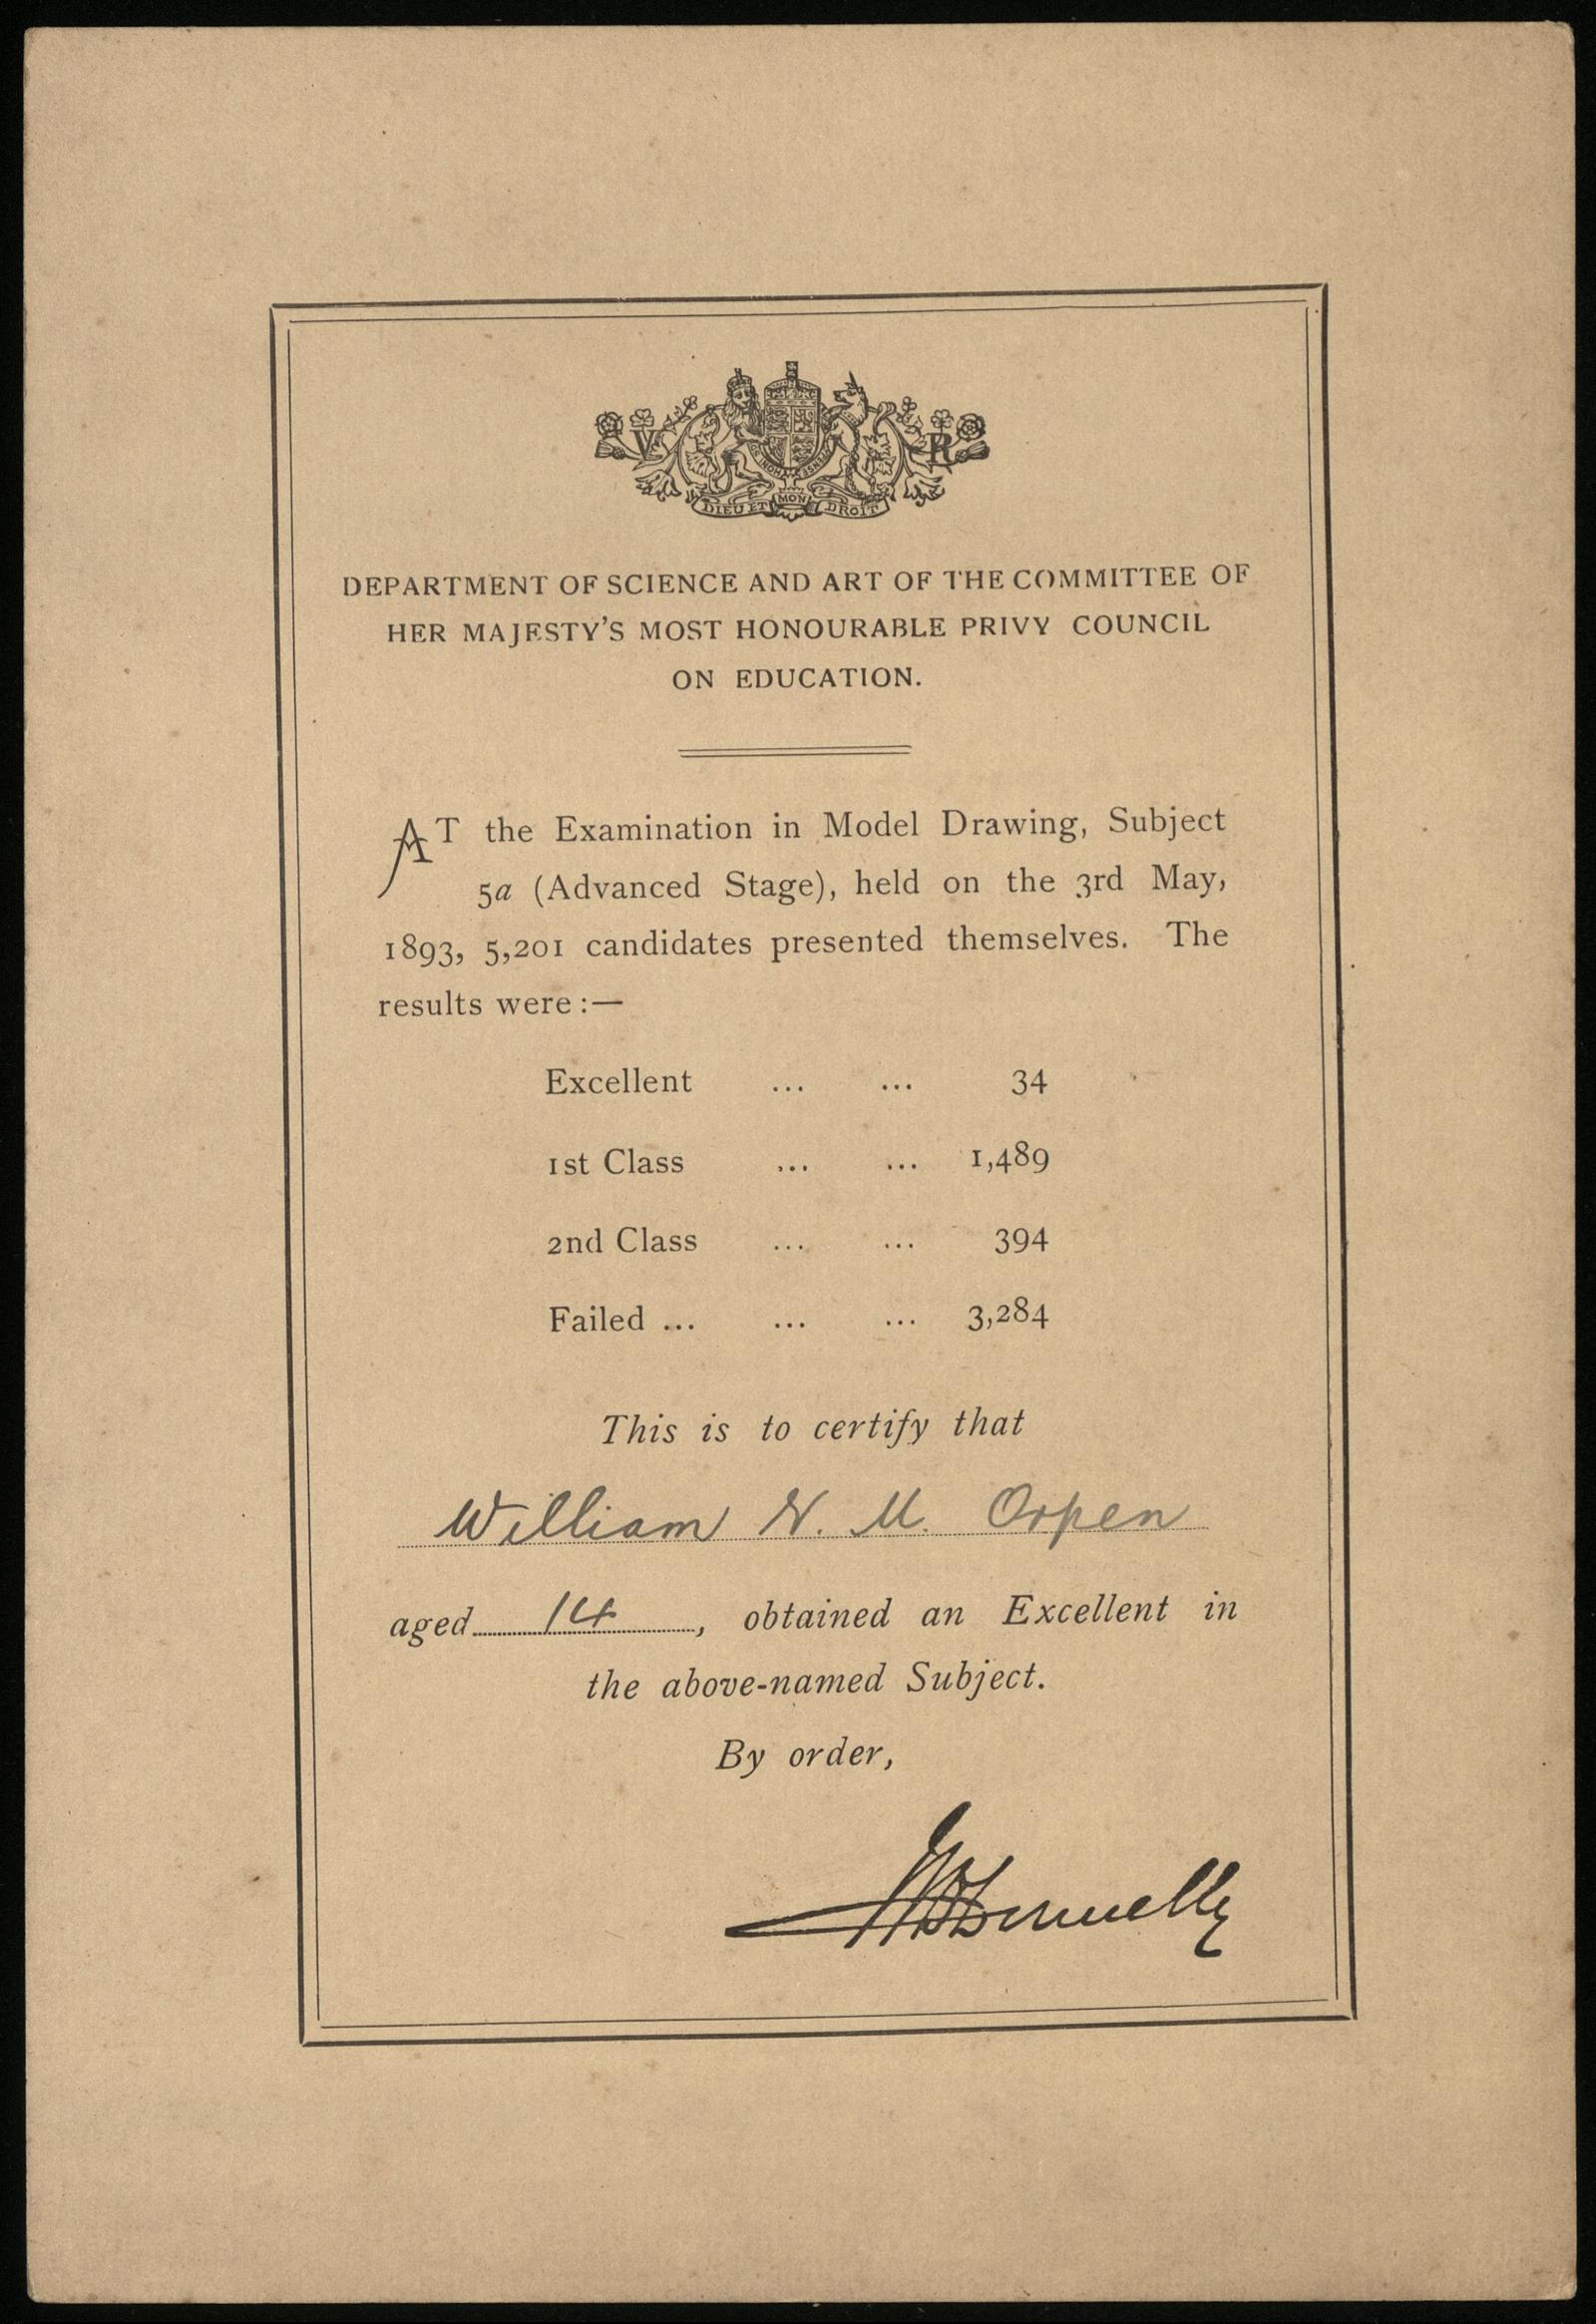 V R
HONI SOIT QUI MAL Y PENSE
DIEU ET MON DROIT
DEPARTMENT OF SCIENCE AND ART OF THE COMMITTEE OF
HER MAJESTY'S MOST HONOURABLE PRIVY COUNCIL
ON EDUCATION.
AT the Examination in Model Drawing, Subject
5a (Advanced Stage), held on the 3rd May,
1893, 5,201 candidates presented themselves. The
results were :—
Excellent ... ... 34
1st Class ... ... 1,489
2nd Class ... ... 394
Failed ... ... ... 3,284
This is to certify that
William N. M. Orpen
aged 14, obtained an Excellent in
the above-named Subject.
By order,
J F D Donnelly